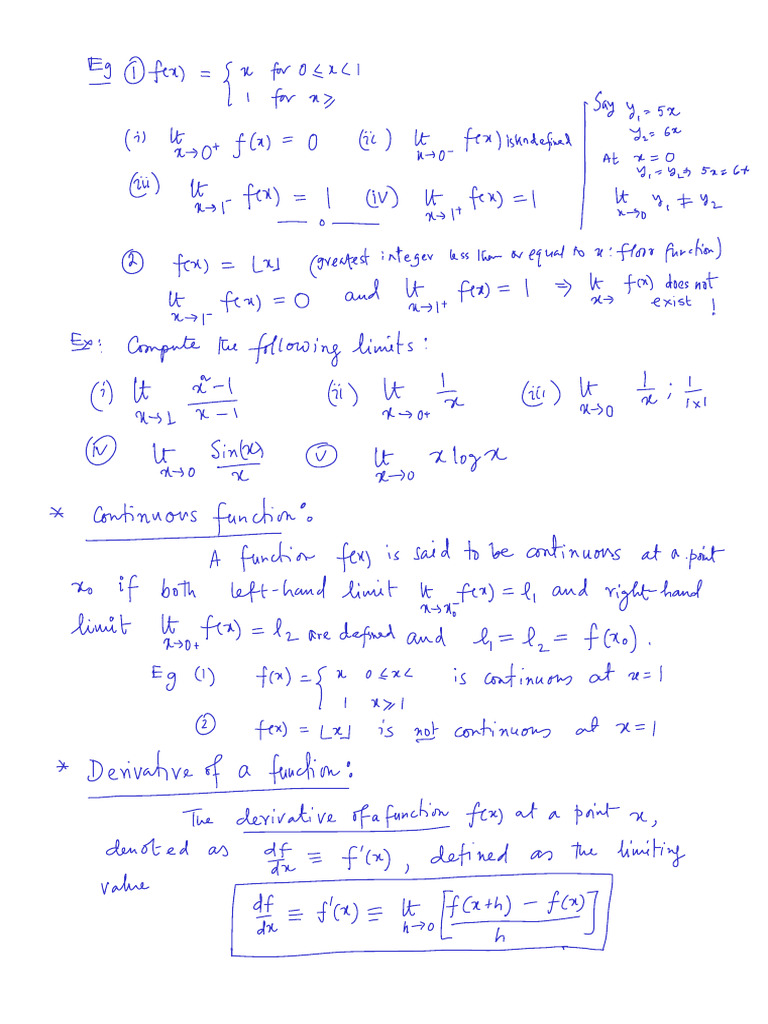 Eg ① f(x) = { x for 0 ≤ x < 1
1 for x ≥
(i) lt x→0⁺ f(x) = 0 (ii) lt x→0⁻ f(x) is undefined
(iii) lt x→1⁻ f(x) = 1 (iv) lt x→1⁺ f(x) = 1
Say y₁ = 5x
y₂ = 6x
At x = 0
y₁ = y₂ ⇒ 5x = 6x
lt x→0 y₁ ≠ y₂
② f(x) = ⌊x⌋ (greatest integer less than or equal to x : floor function)
lt x→1⁻ f(x) = 0 and lt x→1⁺ f(x) = 1 ⇒ lt x→ f(x) does not exist !
Ex: Compute the following limits :
(i) lt x→1 x²-1 / x-1 (ii) lt x→0+ 1/x (iii) lt x→0 1/x ; 1/|x|
(iv) lt x→0 Sin(x)/x (v) lt x→0 x log x
* Continuous function :
A function f(x) is said to be continuous at a point
x₀ if both left-hand limit lt x→x₀⁻ f(x) = l₁ and right-hand
limit lt x→0+ f(x) = l₂ are defined and l₁ = l₂ = f(x₀).
Eg (1) f(x) = { x 0 ≤ x < is continuous at x = 1
1 x ≥ 1
② f(x) = ⌊x⌋ is not continuous at x = 1
* Derivative of a function :
The derivative of a function f(x) at a point x,
denoted as df/dx ≡ f'(x), defined as the limiting
value
df/dx ≡ f'(x) ≡ lt h→0 [f(x+h) - f(x) / h]